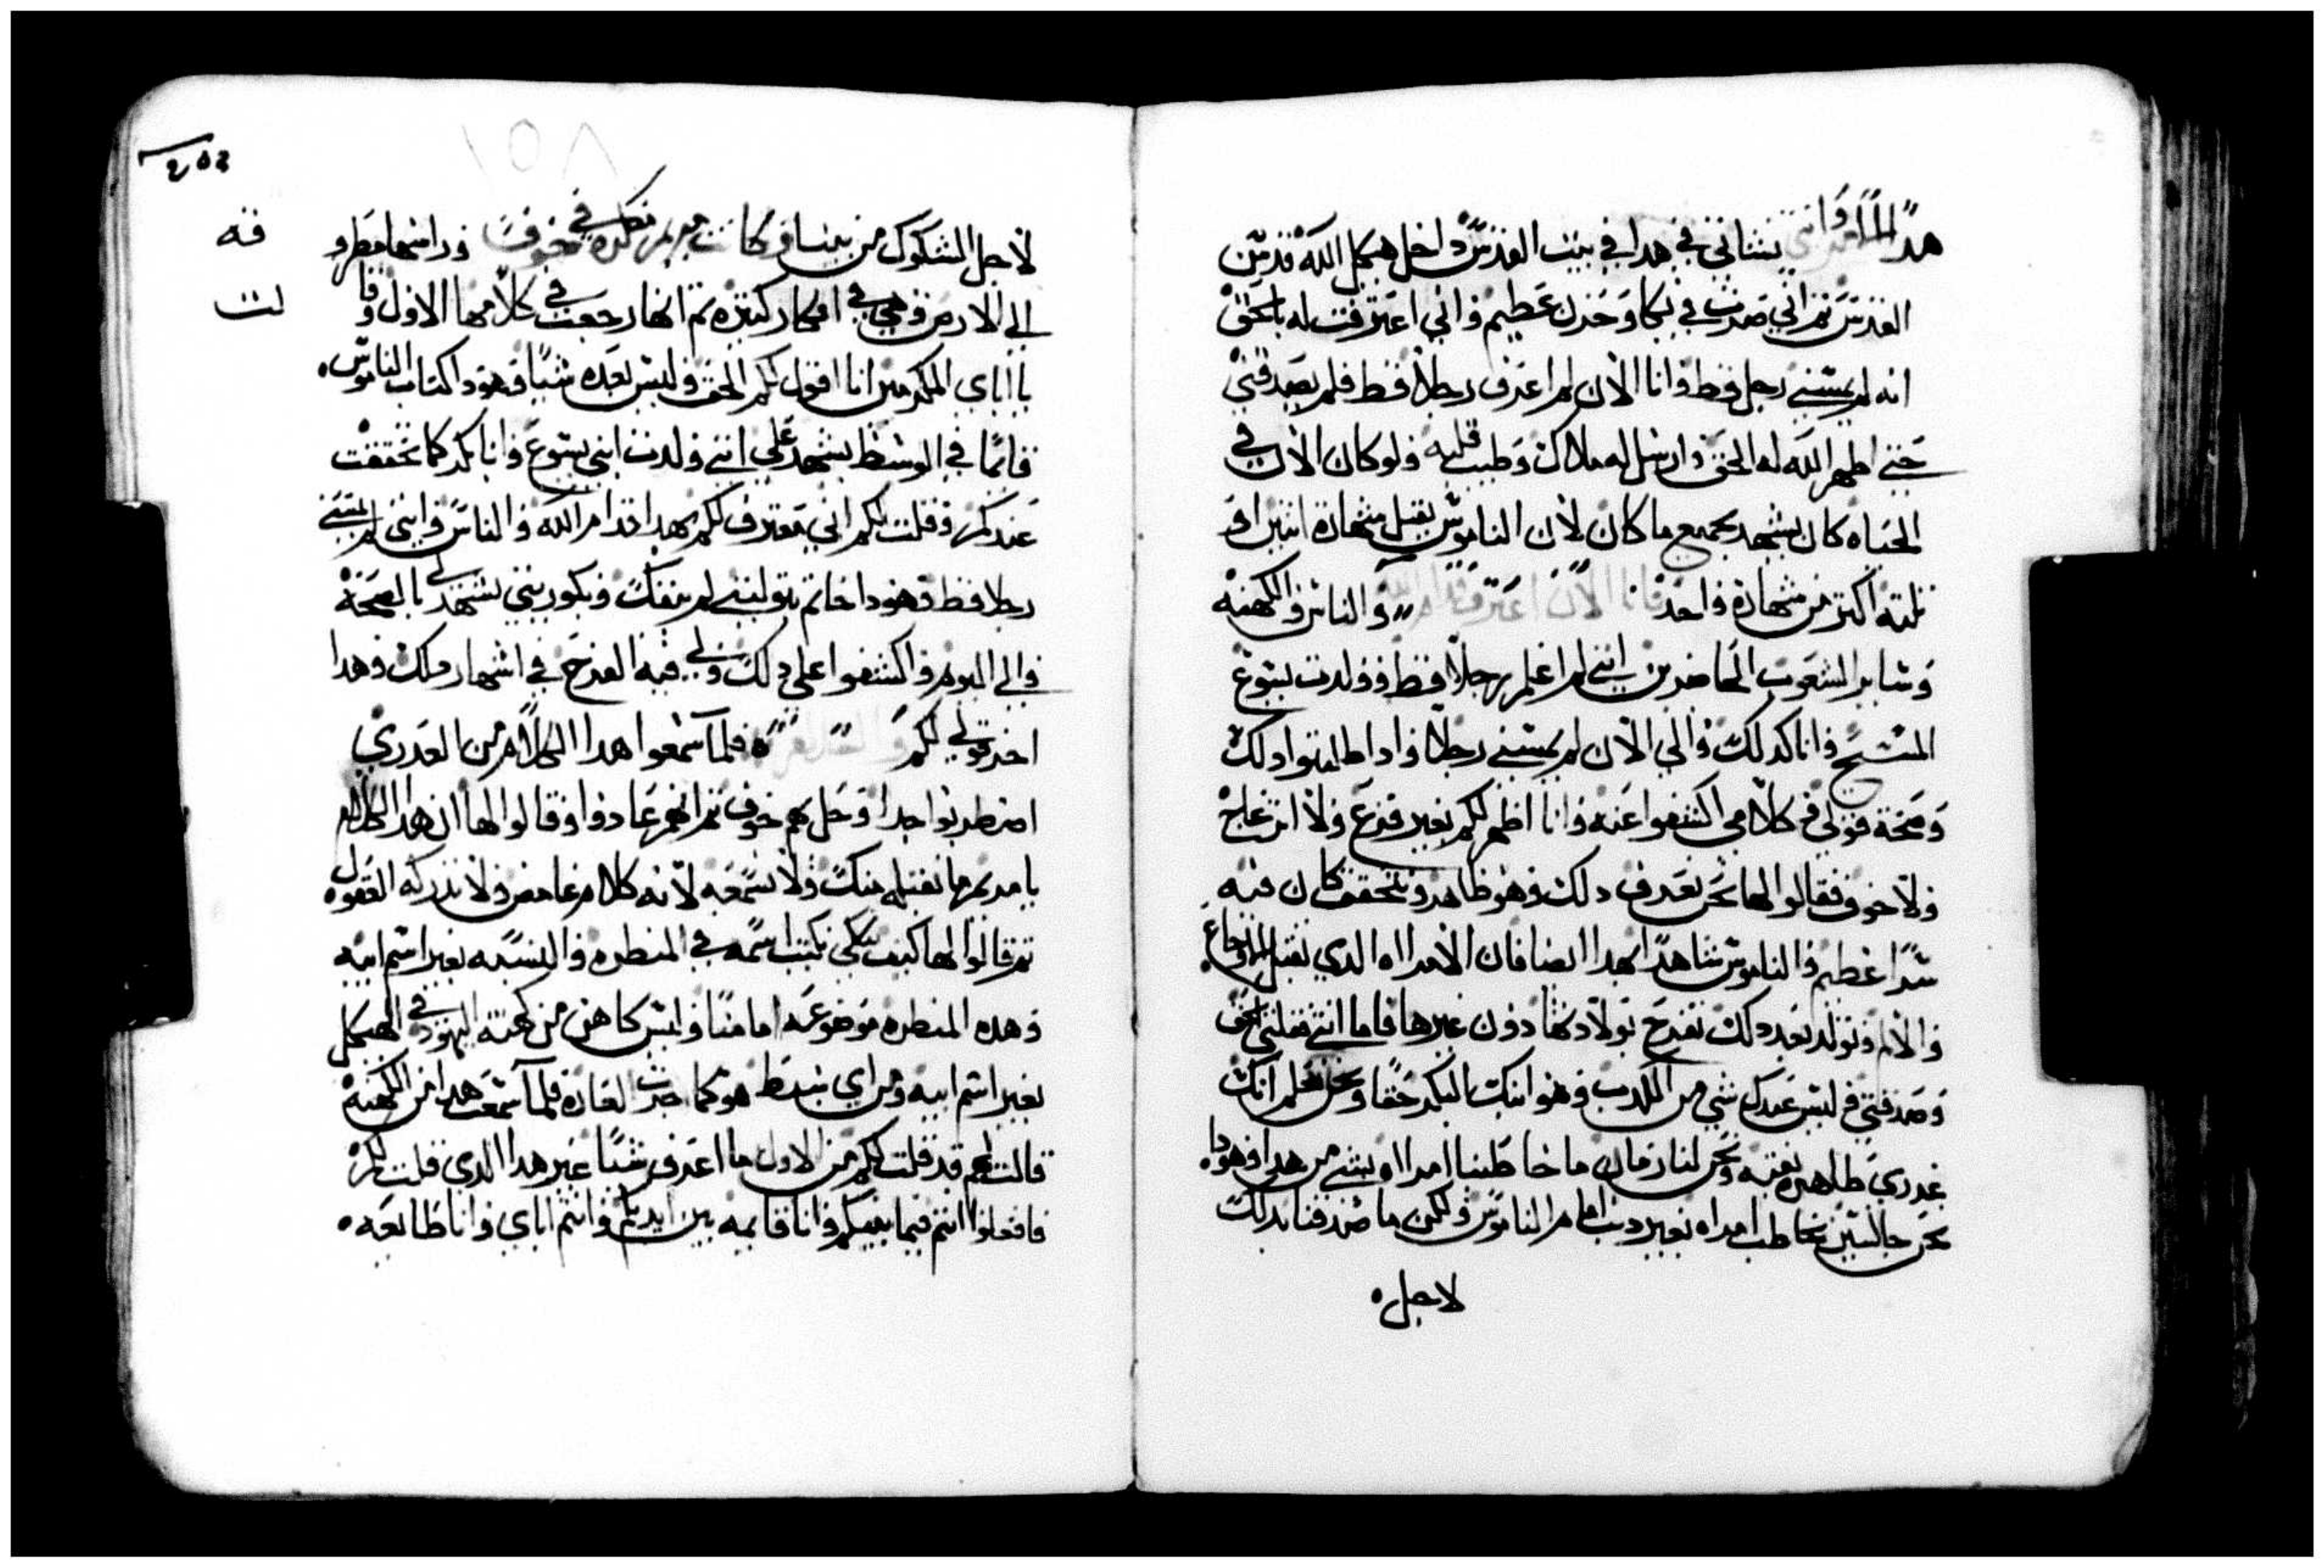 هدا يشاني في هدا في بيت القدس داخل هيكل الله قدس
القدس تم اني صرت في بكا وحزن عظيم واني اعترفت له بالحق
انه لم يمسني رجل قط وانا الان لم اعرف رجلا قط فلم يصدقني
حتي اظهر الله له الحق وارسل له ملاك وطيب قلبه ولو كان الان في
الحياه كان يشهد بجميع ما كان لان الناموس يقبل شهادة اتنين او
تلته اكتر من شهادة واحد فانا الان اعترف قدام الله والناس والكهنه
وساير الشعوب الحاضرين انني لم اعلم رجلا قط وولدت يسوع
المسيح وانا كدلك والي الان لم يمسني رجلا وادا طلبتوا دلك
وصحة قولي في كلامي اكشفوا عنه وانا اظهر لكم بغير فزع ولا انزعاج
ولا خوف فقالوا لها نحن نعرف دلك وهو ظاهر ونتحقق كان فيه
سرا عظيم والناموس شاهدا بهدا ايضا فان الامراه الدي تقبل الاوجاع
والالم وتولد بعد دلك تفرح بولادتها دون غيرها فاما انتي فقلتي الحق
وصدقتي وليس عندك شي من الكدب وهو ابنك البكر حقا ونحن نعلم انك
عدري طاهره نقيه ونحن لنا زمان ما خاطبنا امراه بشي من هدا وهودا
نحن جالسين نخاطب امراه بغير دنب امام الناموس ولكن ما صدقنا بدلك
لاجل
٢٥٤
١٥٨
لاجل الشكوك من بيننا وكانت مريم تفكره في خوف وراسها مطرو
قه
الي الارض وهي في افكار كتيره تم انها رجعت في كلامها الاول وقا
لت
يا اباي المكرمين انا اقول لكم الحق وليس بعده شيا وهودا كتاب الناموس
قايما في الوسط يشهد علي انني ولدت ابني يسوع وانا بكر كما تحققت
عندكم وقلت لكم اني معترف لكم بهدا قدام الله والناس وانني لم يمسني
رجلا قط وهودا خاتم بتوليتي لم ينفك وبكوريتي تشهد لي بالصحة
والي اليوم واكشفوا علي دلك ولي فيه الفرح في اشهار دلك وهدا
اخر قولي لكم والسلام فلما سمعوا هدا الكلام من العدري
اضطربوا جدا وحل بهم خوف تم انهم عادوا وقالوا لها ان هدا الكلام
يا مريم ما نقبله منك ولا نسمعه لانه كلام غامض ولا تدركه العقول
تم قالوا لها كيف لكي نكتب اسمه في المنطره والنسبه بغير اسم ابيه
وهده المنطره موضوعه امامنا وليس كاهن من كهنة اليهود في الهيكل
بغير اسم ابيه ومن اي سبط هو كما جرت العادة فلما سمعت هدا من الكهنه
قالت لهم قد قلت لكم من الاول ما اعرف شيا غير هدا الدي قلت لكم
فافعلوا انتم فيما بينكم وانا قايمه بين ايديكم وانتم اباي وانا طايعه